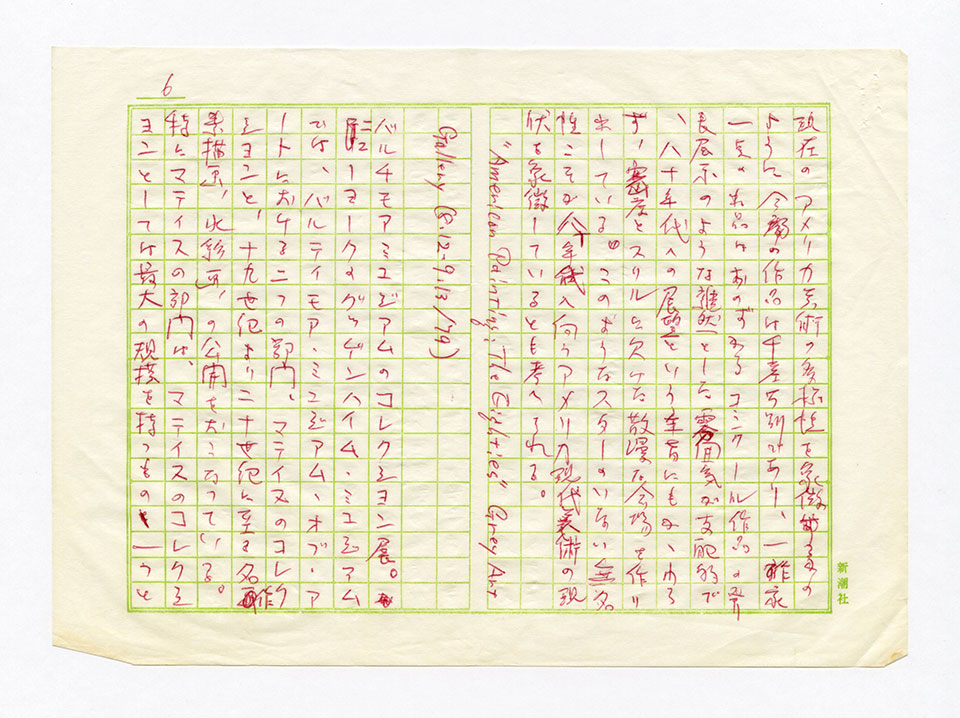 6
現在のアメリカ美術の多極性を象徴するもの
ように今回の作品は千差万別であり、一作家
一点の出品はおのずからコンクール作品の発
表展示のような雑然とした雰囲気が支配的で
、八十年代への展望という主旨にもかゝわら
ず、密度とスリルに欠けた散漫な会場を作り
出している。このようなスターのいない無名
性こそが八十年代へ向うアメリカ現代美術の現
状を象徴しているとも考へられる。
"American Painting; The Eighties" Grey Art
Gallery (8.12-9.13/79)
バルチモアミユヂアムのコレクシヨン展。
ニユーヨークのグツゲンハイム・ミユヂアム
では、バルティモア・ミユヂアム、オブ・ア
ートにおける二つの部門、マティスのコレク
シヨンと、十九世紀より二十世紀に至る名作
素描画、水彩画、の公開をおこなつている。
特にマティスの部門は、マティスのコレクシ
ヨンとしては最大の規模を持つもの一つと
新潮社